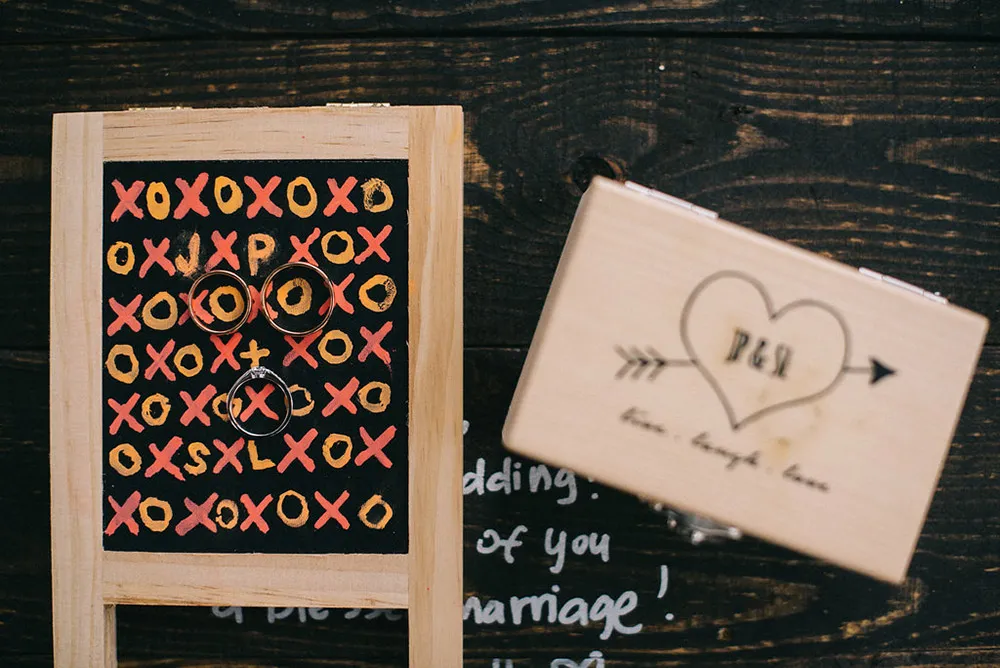 XOXOXOXO
OXJXPXOX
XOXOXOXO
OXOX+XOX
XOXOXOXO
OXSXLXOX
XOXOXOXO
JP & SL
live . laugh . love
dding!
of you
marriage!